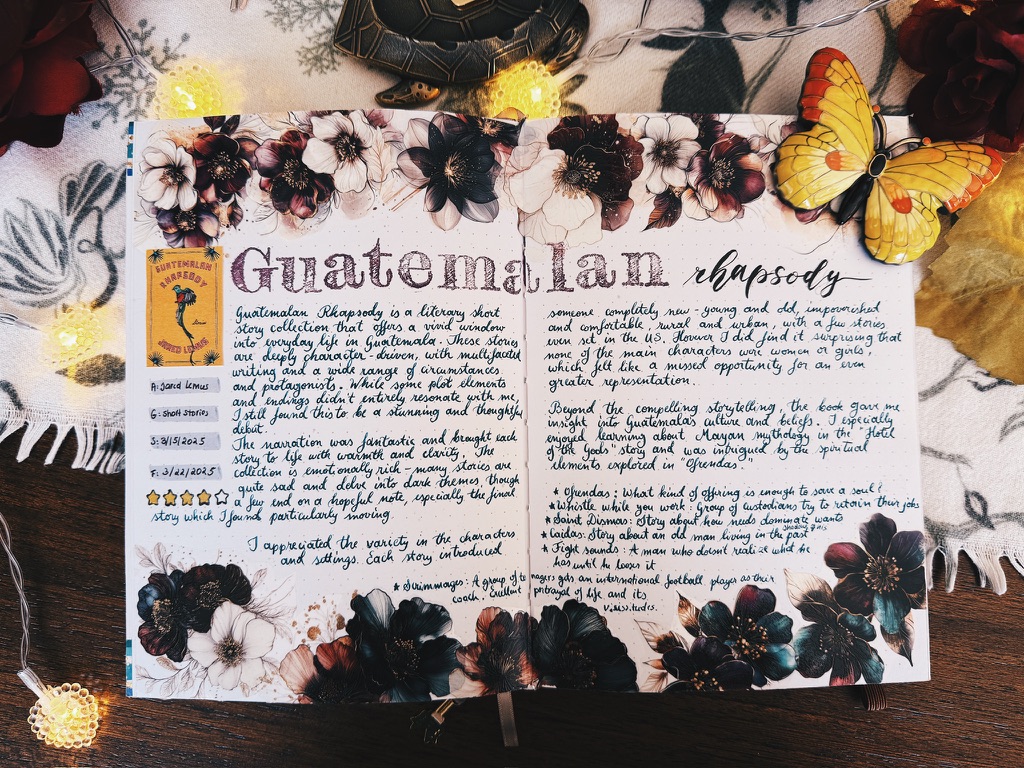 Guatemalan rhapsody
GUATEMALAN
RHAPSODY
JARED LEMUS
A: Jared Lemus
G: Short stories
S: 3/15/2025
F: 3/22/2025
Guatemalan Rhapsody is a literary short
story collection that offers a vivid window
into everyday life in Guatemala. These stories
are deeply character-driven, with multifaceted
writing and a wide range of circumstances
and protagonists. While some plot elements
and endings didn't entirely resonate with me,
I still found this to be a stunning and thoughtful
debut.
The narration was fantastic and brought each
story to life with warmth and clarity. The
collection is emotionally rich - many stories are
quite sad and delve into dark themes, though
a few end on a hopeful note, especially the final
story which I found particularly moving.
I appreciated the variety in the characters
and settings. Each story introduced
someone completely new - young and old, impoverished
and comfortable, rural and urban, with a few stories
even set in the US. However I did find it surprising that
none of the main characters were women or girls,
which felt like a missed opportunity for an even
greater representation.
Beyond the compelling storytelling, the book gave me
insight into Guatemala's culture and beliefs. I especially
enjoyed learning about Mayan mythology in the "Hotel
of the Gods" story and was intrigued by the spiritual
elements explored in "Ofrendas."
★ Ofrendas: What kind of offering is enough to save a soul?
★ Whistle while you work: Group of custodians try to retain their jobs
★ Saint Dismas: Story about how needs dominate wants
★ Caidas: Story about an old man living in the past
★ Fight sounds: A man who doesn't realize what he
has until he loses it
★ A group of teenagers gds an international football player as their
coach. Excellent portrayal of life and its